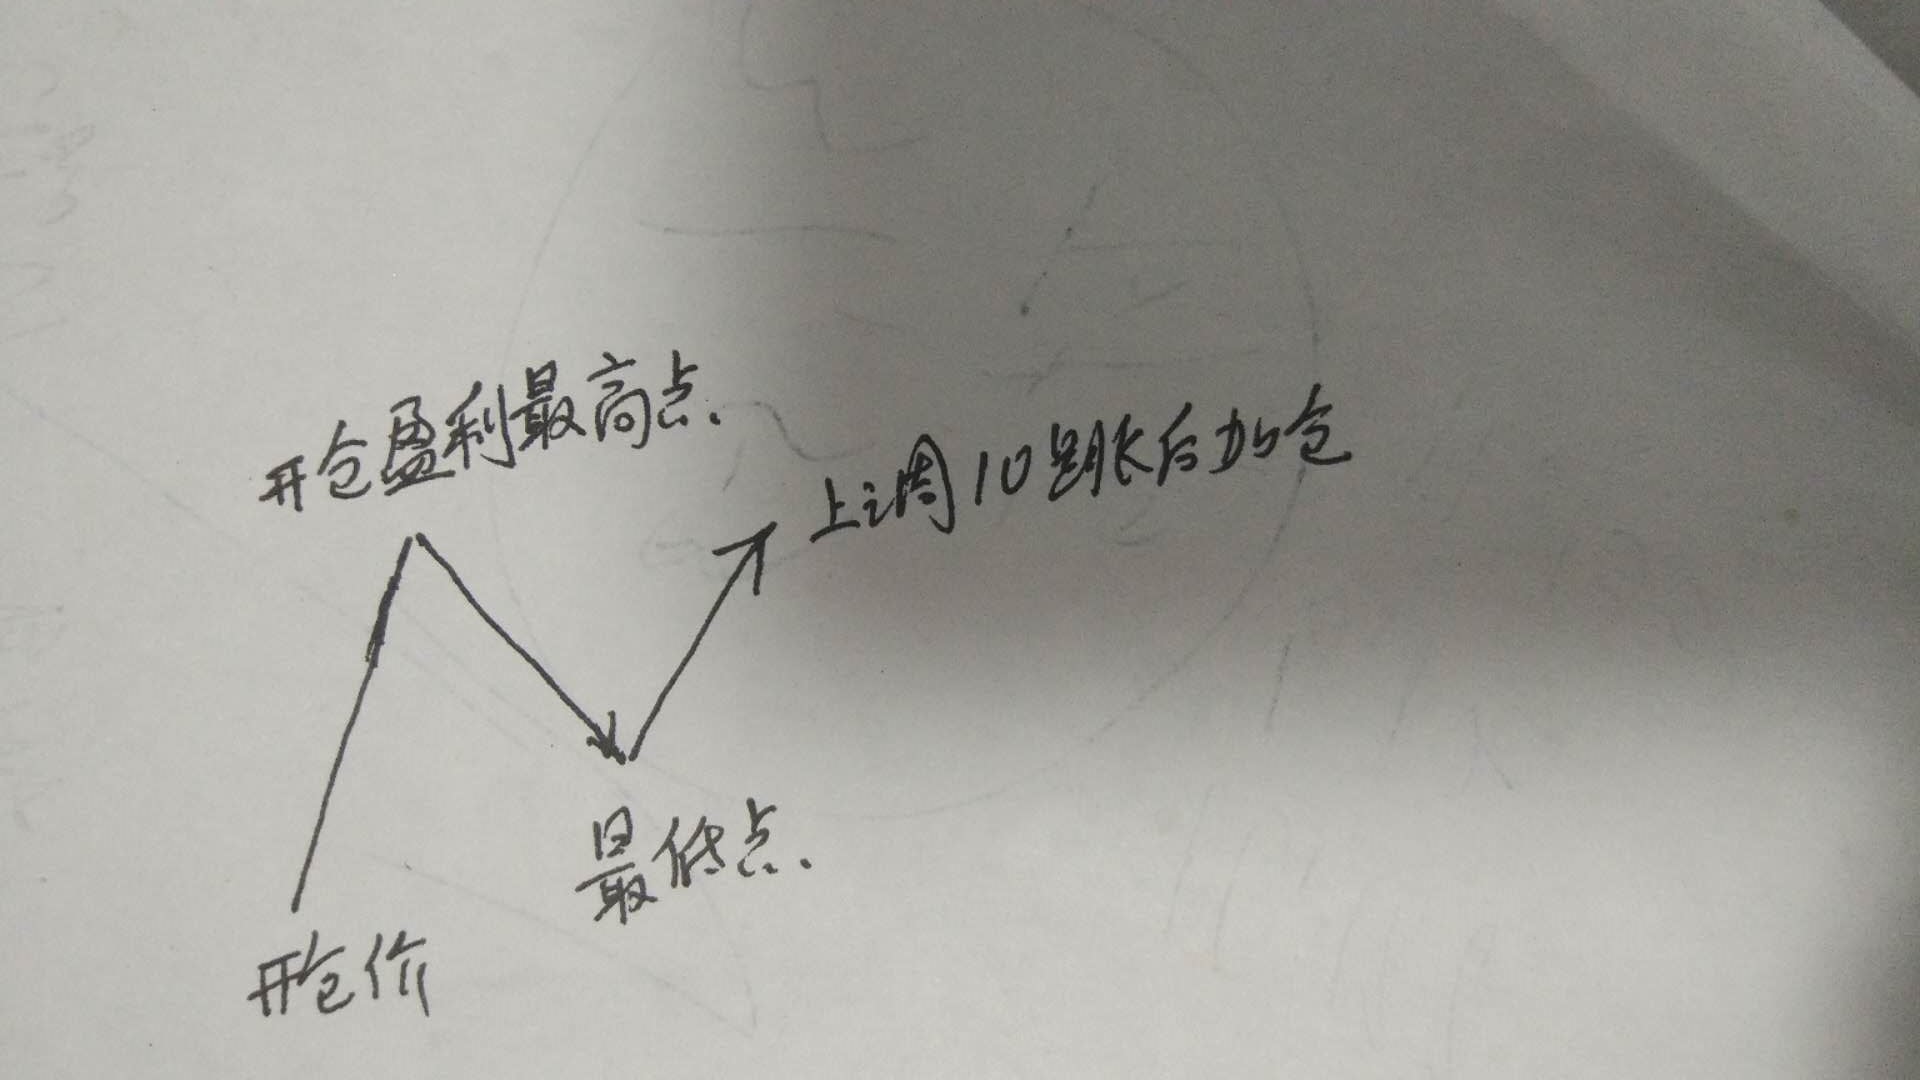 开仓盈利最高点.
上调10跳后加仓
最低点.
开仓价